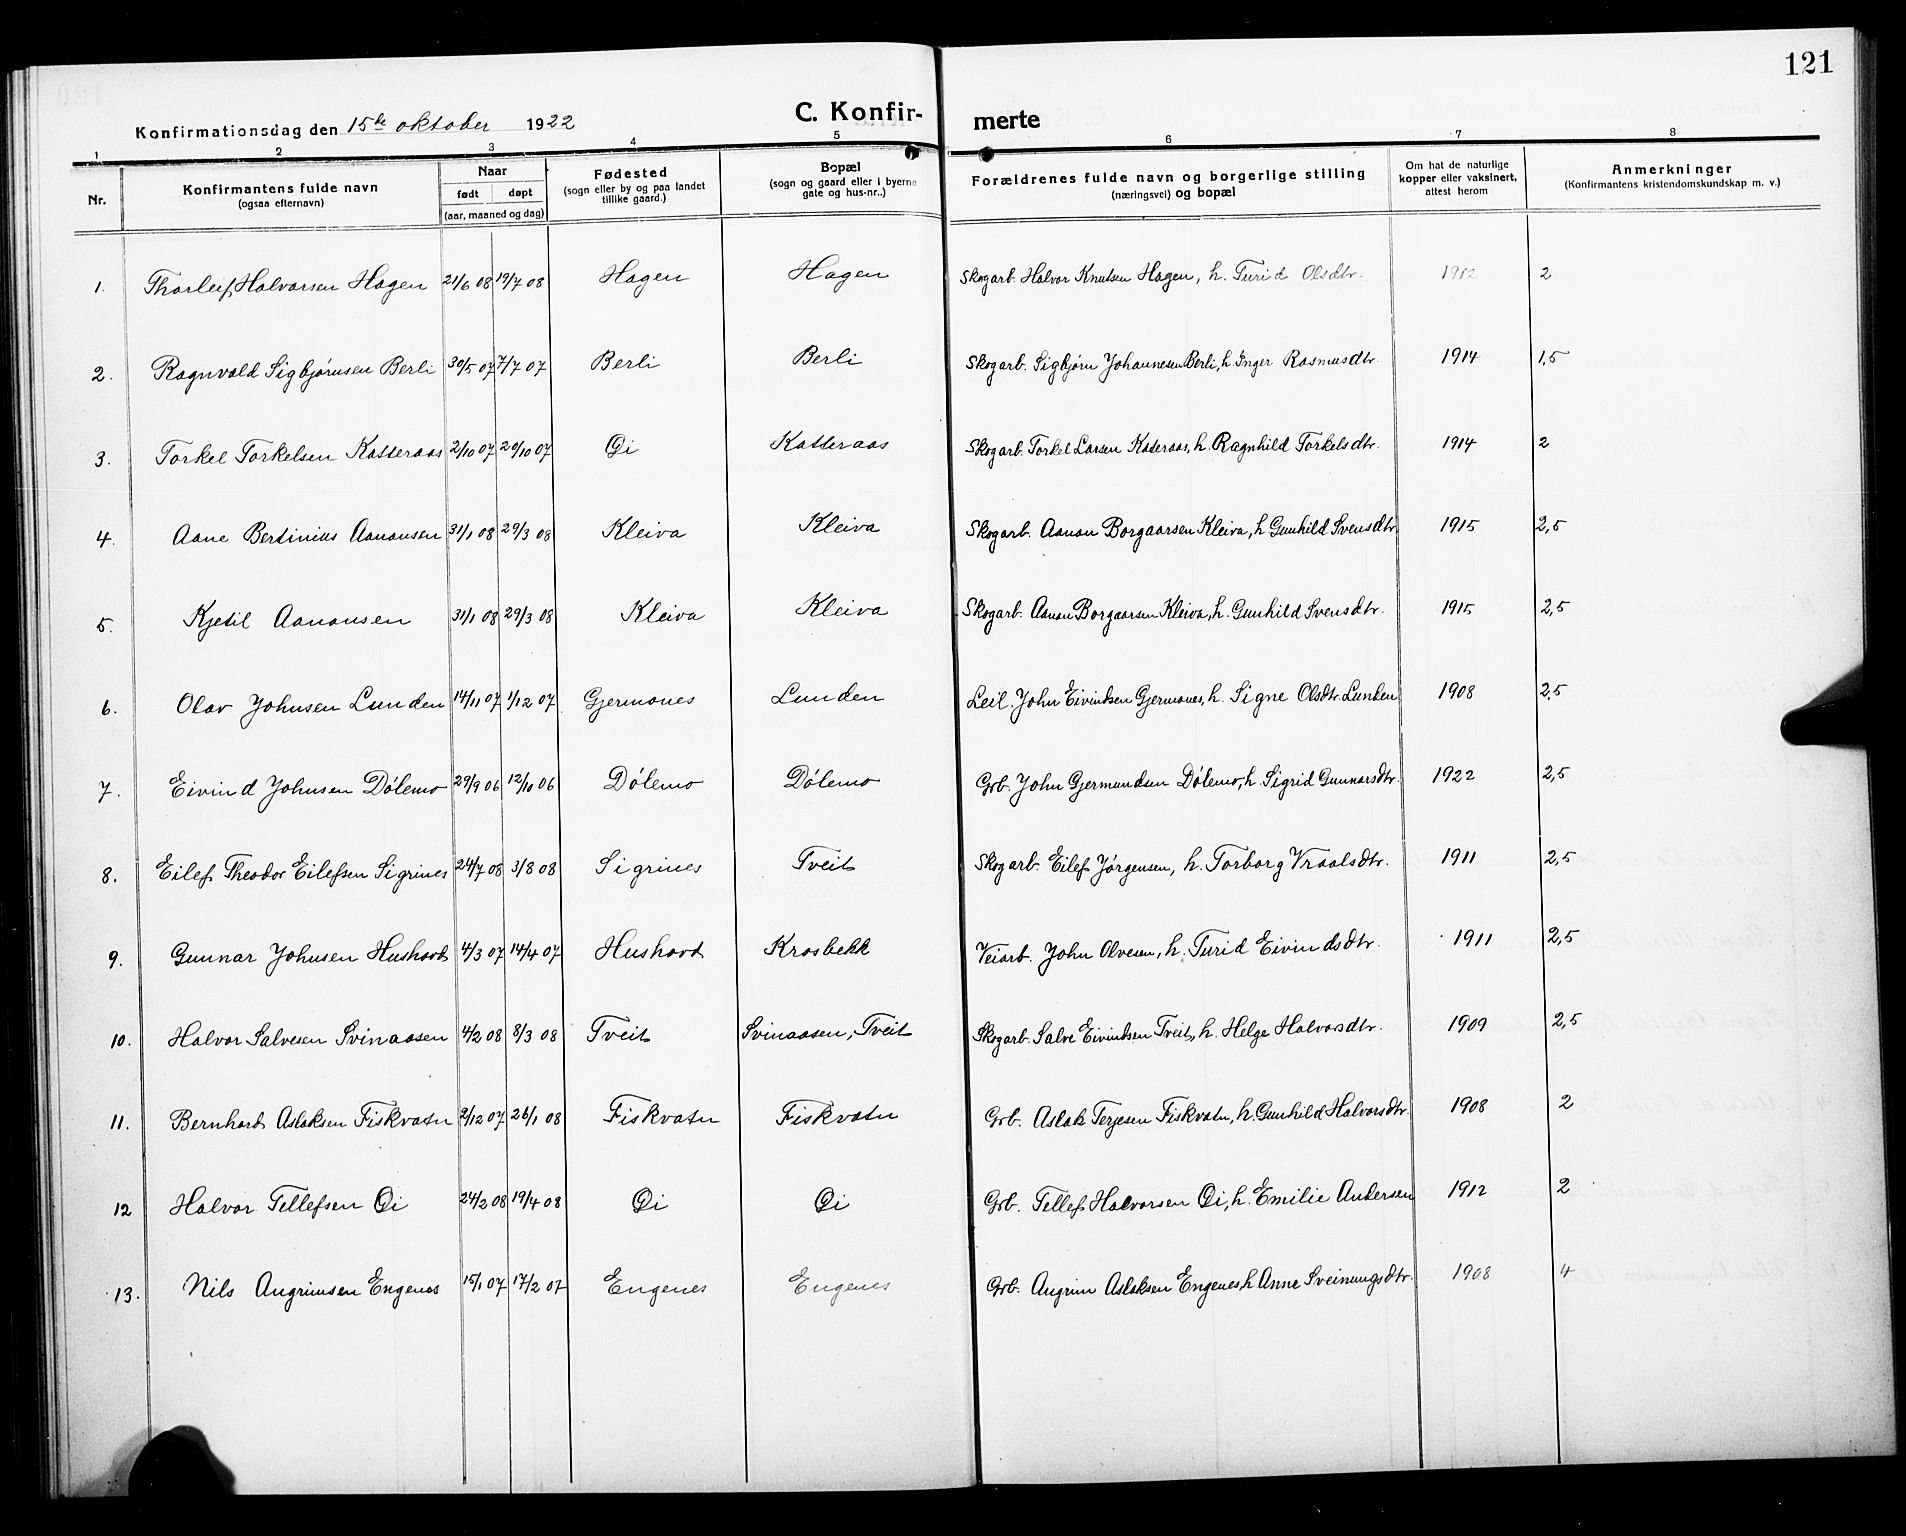 121
Konfirmationsdag den 15de oktober 1922 C. Konfir- merte
1 2 3 4 5 6 7 8
Nr. Konfirmantens fulde navn (ogsaa efternavn) Naar født døpt (aar, maaned og dag) Fødested (sogn eller by og paa landet tillike gaard.) Bopæl (sogn og gaard eller i byerne gate og hus-nr..) Forældrenes fulde navn og borgerlige stilling (næringsvei) og bopæl Om hat de naturlige kopper eller vaksinert, attest herom Anmerkninger (Konfirmantens kristendomskundskap m. v.)
1. Thorleif Halvorsen Hagen 21/6 08 19/7 08 Hagen Hagen Skogarb. Halvor Knutsen Hagen, h. Turid Olsdtr. 1912 2
2. Ragnvald Sigbjørnsen Berli 30/5 07 7/7 07 Berli Berli Skogarb. Sigbjørn Johannesen Berli, h. Inger Rasmusdtr. 1914 1,5
3. Torkel Torkelsen Katteraas 2/10 07 20/10 07 Øi Katteraas Skogarb. Torkel Larsen Katteraas, h. Ragnhild Torkelsdtr. 1914 2
4. Aane Bertinius Aanonsen 31/1 08 29/3 08 Kleiva Kleiva Skogarb. Aanon Borgaarsen Kleiva, h Gunhild Svensdtr 1915 2,5
5. Kjetil Aanonsen 31/1 08 29/3 08 Kleiva Kleiva Skogarb. Aanon Borgaarsen Kleiva, h. Gunhild Svensdtr. 1915 2,5
6. Olav Johnsen Lunden 14/11 07 1/12 07 Gjermones Lunden Leil. John Eivindsen Gjermones, h. Signe Olsdtr. Lunden 1908 2,5
7. Eivind Johnsen Dølemo 29/9 06 12/10 06 Dølemo Dølemo Grb. John Gjermundsen Dølemo, h. Sigrid Gunnarsdtr. 1922 2,5
8. Eilef Theodor Eilefsen Sigrines 24/7 08 3/8 08 Sigrines Tveit Skogarb. Eilef Jørgensen, h. Torborg Vraalsdtr. 1911 2,5
9. Gunnar Johnsen Hushovd 4/3 07 14/4 07 Hushovd Krosbekk Veiarb. John Olvesen, h. Turid Eivindsdtr. 1911 2,5
10. Halvor Salvesen Svinaasen 4/2 08 8/3 08 Tveit Svinaasen, Tveit Skogarb. Salve Eivindsen Tveit, h. Helge Halvorsdtr. 1909 2,5
11. Bernhard Aslaksen Fiskvatn 2/12 07 26/1 08 Fiskvatn Fiskvatn Grb. Aslak Terjesen Fiskvatn, h. Gunhild Halvorsdtr. 1908 2
12 Halvor Tellefsen Øi 24/2 08 19/4 08 Øi Øi Grb. Tellef Halvorsen Øi, h. Emilie Andersen 1912 2
13. Nils Angrimsen Engenes 15/1 07 17/2 07 Engenes Engenes Grb. Angrim Aslaksen Engenes h Anne Sveinungsdtr. 1908 4